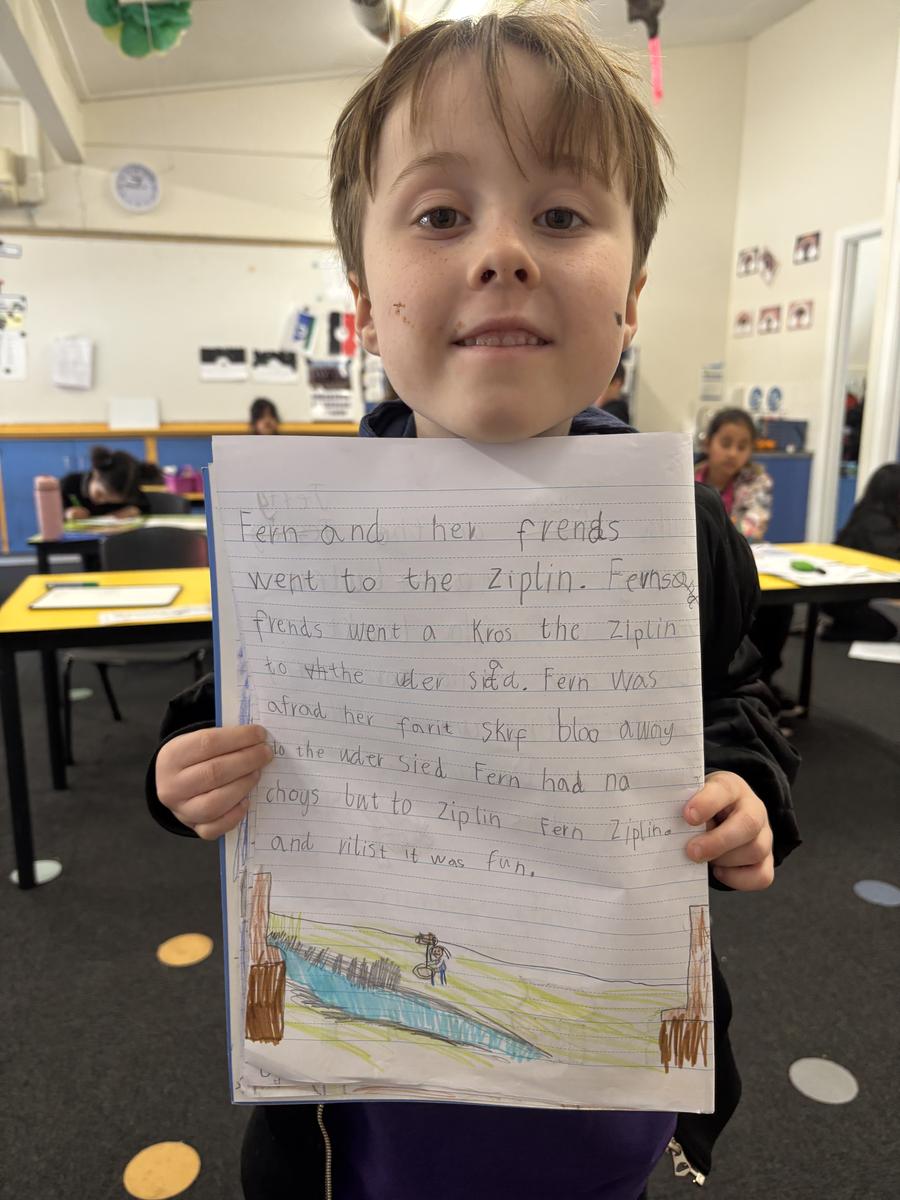 Fern and her frends
went to the Ziplin. Ferns
frends went a Kros the Ziplin
to the uder siad. Fern was
afrad her farit skrf bloo away
to the uder sied Fern had na
choys but to Ziplin Fern Ziplin.
and rilist it was fun.